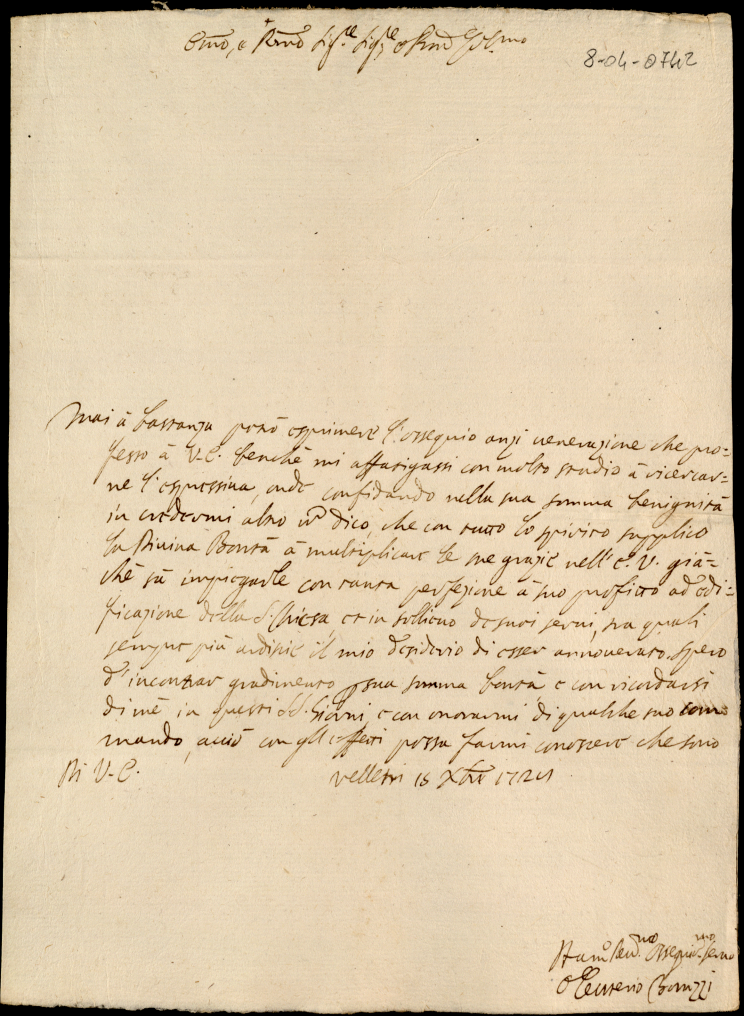 Em̃o, e Rem̃o Sig.re Sig.re e Pron̄ Col.mo
8-04-0742
Mai à bastanza potrò esprimere l'ossequio anzi venerazione che pro=
fesso à V.E. benche mi affatigassi con molto studio à ricercar=
ne l'espressiva, onde confidando nella sua somma benignità
in credermi altro nō dico, che con tutto lo spirito supplico
la Divina Bontà à multiplicare le sue grazie nell'E.V. già=
chè sà impiegarle con tanta perfezione à suo profitto ad edi=
ficazione della S. Chiesa, et in sollievo de suoi servi, tra quali
sempre più ardisce il mio desiderio di esser annoverato. spero
d'incontrar gradimento p sua somma bontà e con ricordarsi
di mè in questi SS. Giorni, e con onorarmi di qualche suo com
mando, acciò con gli effetti possa farmi conoscere che sono
Di V.E. Velletri 18 Xbre 1721
Hum.o Dev.mo Ossequi.mo servo
Eleuterio Boruzzi